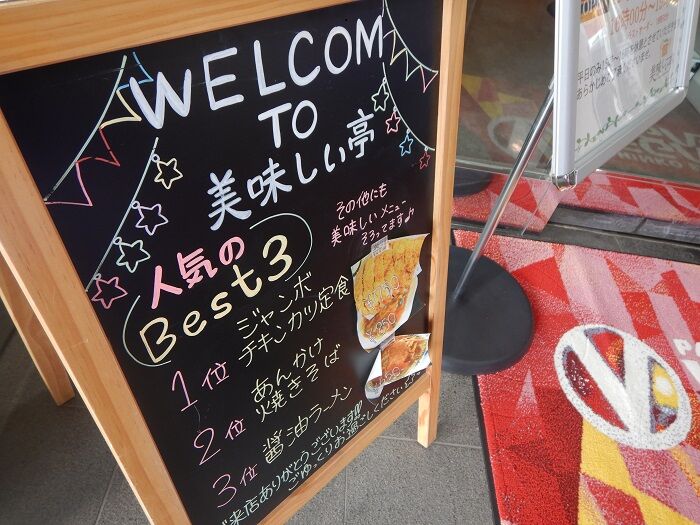 WELCOM
TO
美味しい亭
その他にも
美味しいメニュー
そろってます♪
人気の
Best3
1位 ジャンボ
チキンカツ定食
2位 あんかけ
焼きそば
3位 醤油ラーメン
ご来店ありがとうございます!!
ごゆっくりお過ごしください